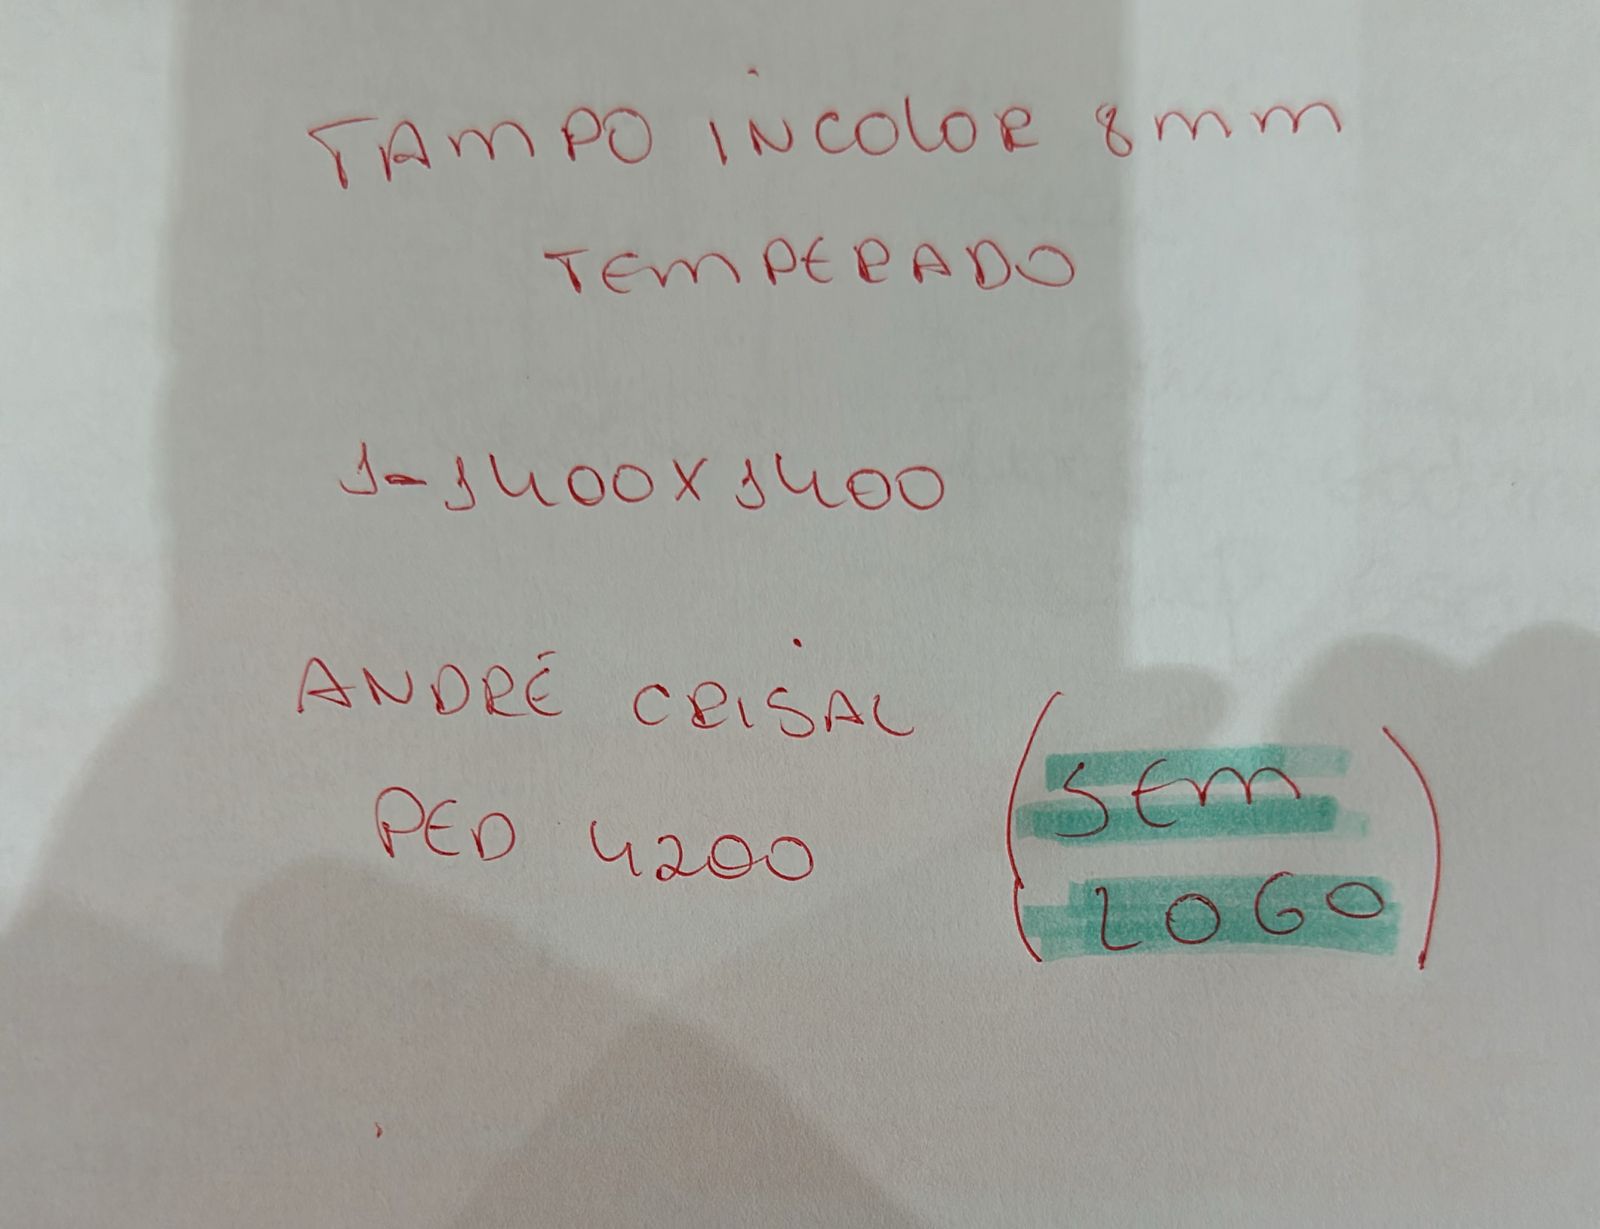 TAMPO INCOLOR 8mm
TEMPERADO
1-1400X1400
ANDRÉ CRISAL
PED 4200
(SEM
LOGO)